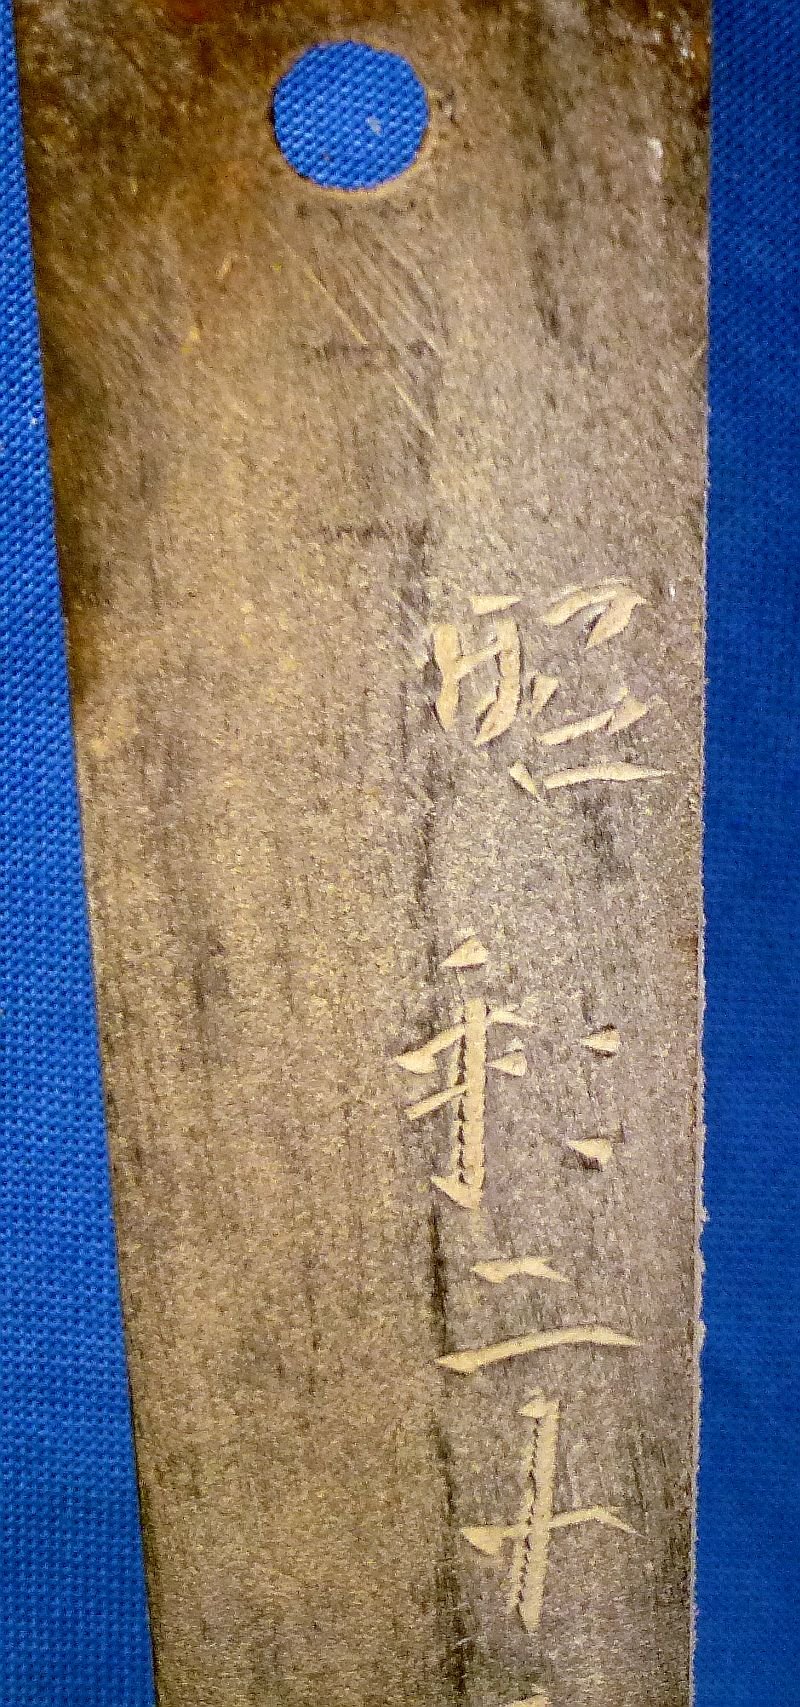 昭和二十